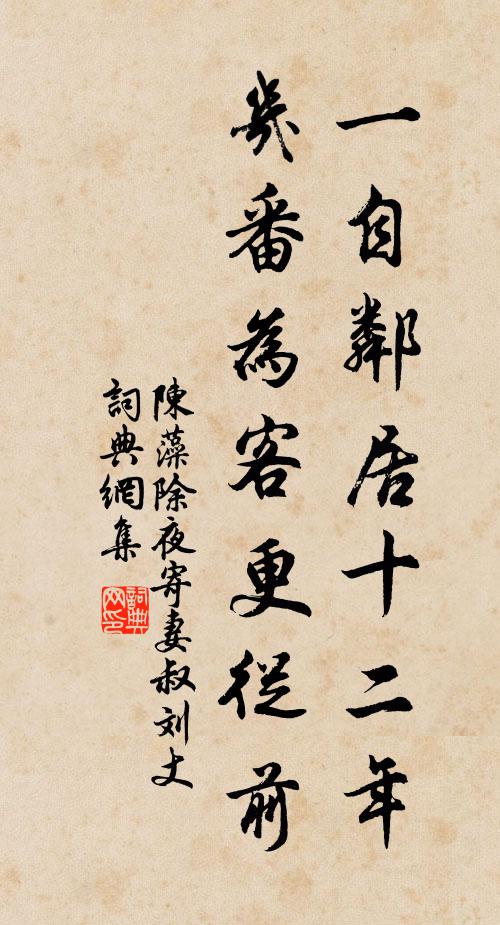 一自鄰居十二年
幾番為客更從前
陳藻除夜寄妻叔刘丈
詞典網集
詞典网印